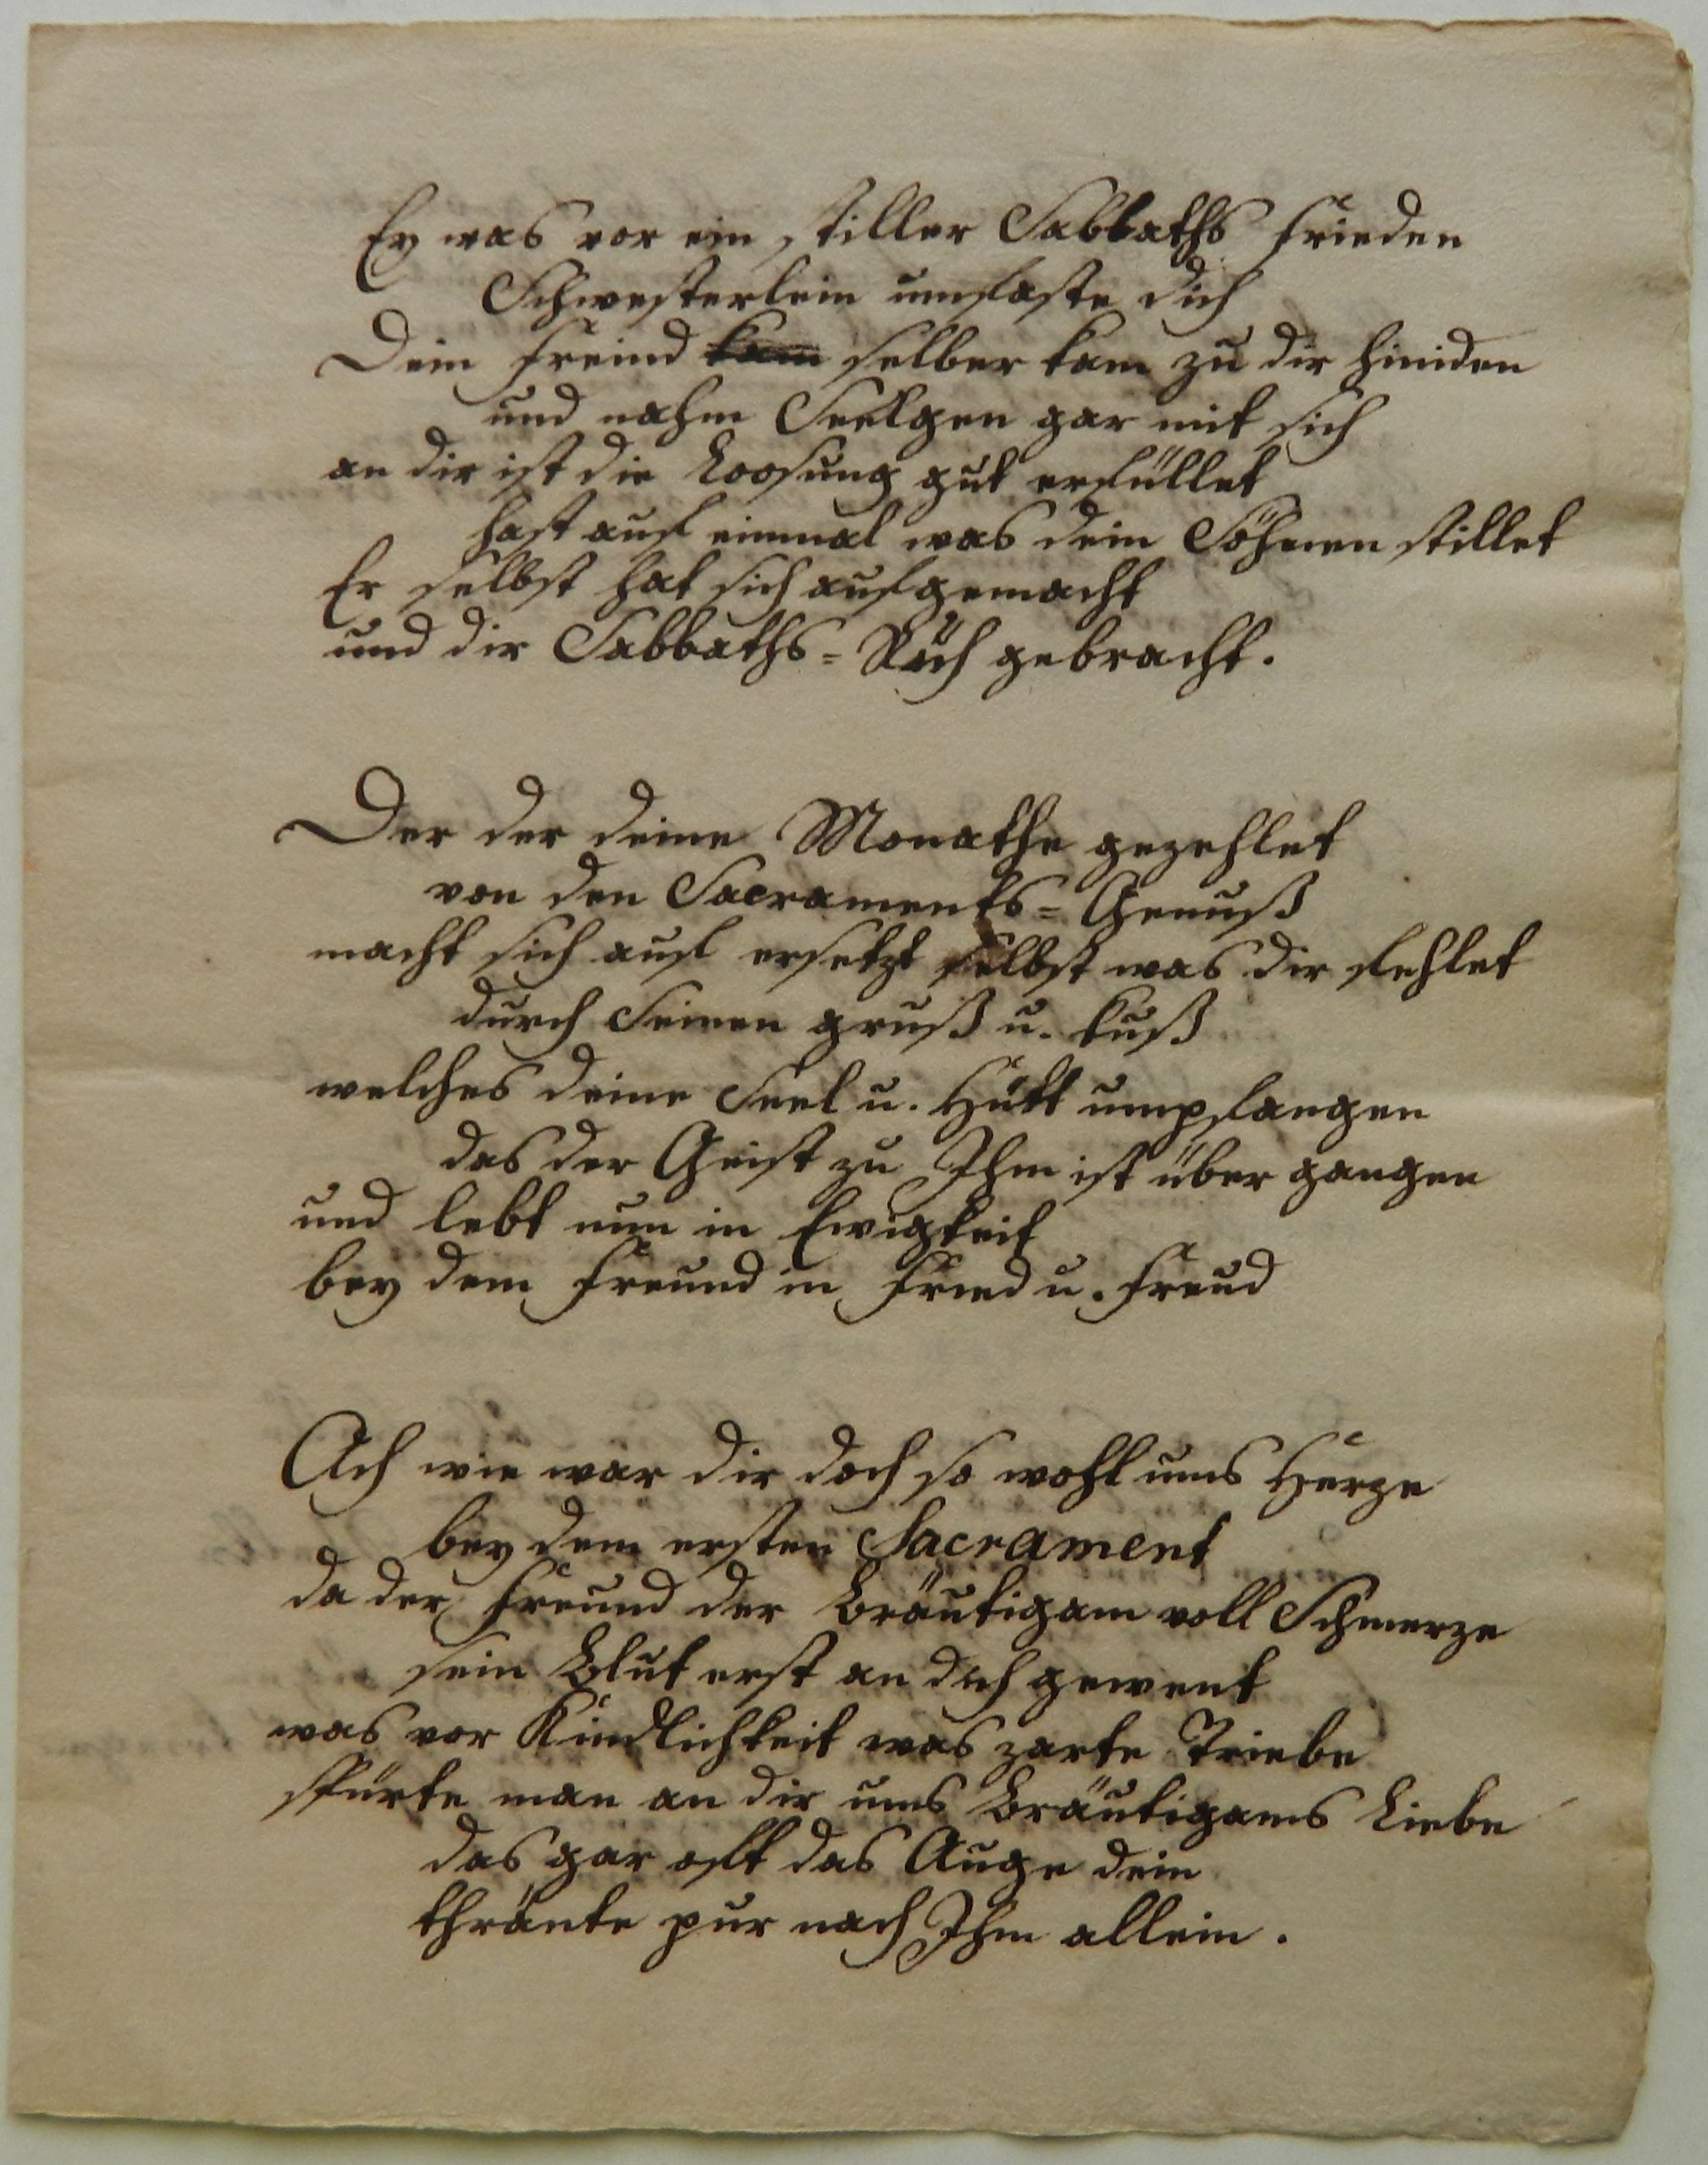 Ey was vor ein stiller Sabbaths Frieden
Schwesterlein umfaste dich
Dein Freund kam selber kam zu dir hiniden
und nahm Seelgen gar mit sich
an dir ist die Loosung gut erfüllet
hast auf einmal was dein Söhnen stillet
Er selbst hat sich aufgemacht
und dir Sabbaths-Ruh gebracht.
Der der deine Monathe gezehlet
von den Sacraments-Genuß
macht sich auf ersetzt selbst was dir fehlet
durch Seinen gruß u. kuß
welches deine Seel u. Hütt umpfangen
das der Geist zu Ihm ist über gangen
und lebt nun in Ewigkeit
bey dem Freund in Fried u. Freud
Ach wie war dir doch so wohl ums Herze
bey dem ersten Sacrament
da der Freund der Bräutigam voll Schmerze
sein Blut erst an dich gewent
was vor Kindlichkeit was zarte Triebe
spürte man an dir ums Bräutigams Liebe
das gar oft das Auge dein
thränte pur nach Ihm allein.